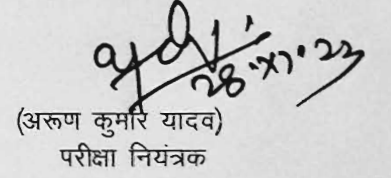 28.XI.23
(अरूण कुमार यादव)
परीक्षा नियंत्रक